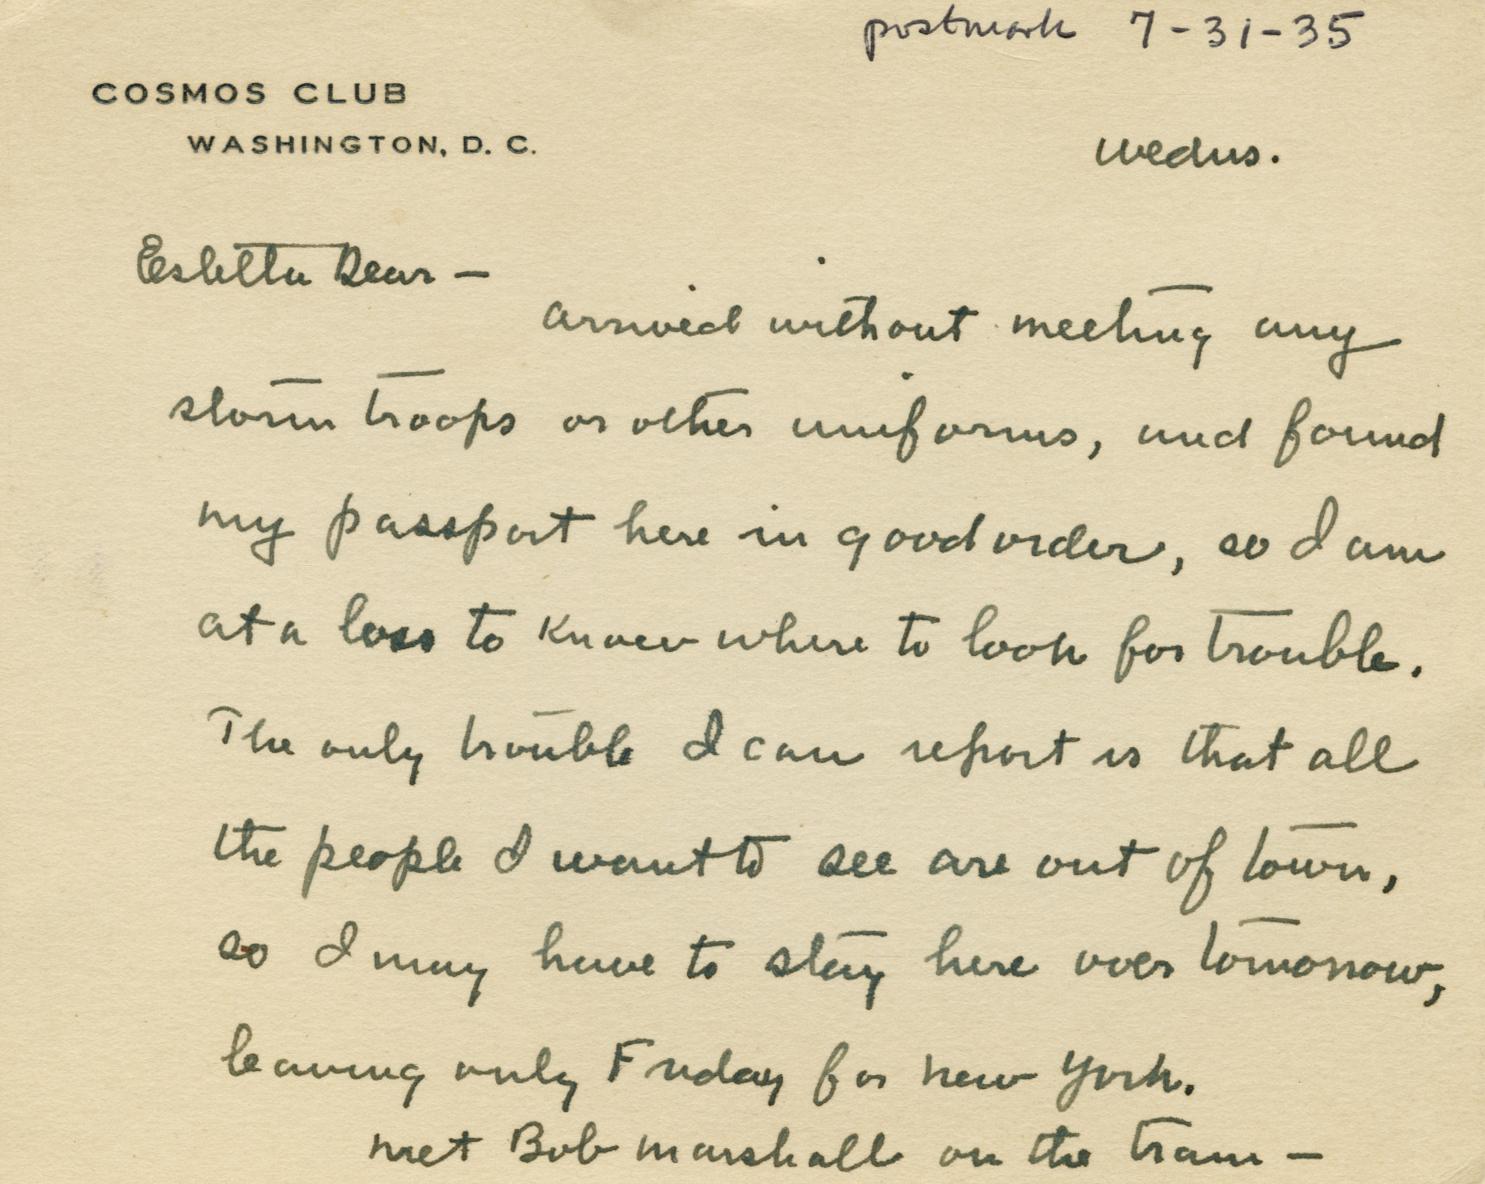 postmark 7-31-35
COSMOS CLUB
WASHINGTON, D. C.
Wedns.
Estella Dear —
Arrived without meeting any
storm troops or other uniforms, and found
my passport here in good order, so I am
at a loss to know where to look for trouble.
The only trouble I can report is that all
the people I want to see are out of town,
so I may have to stay here over tomorrow,
leaving only Friday for New York.
Met Bob Marshall on the train —